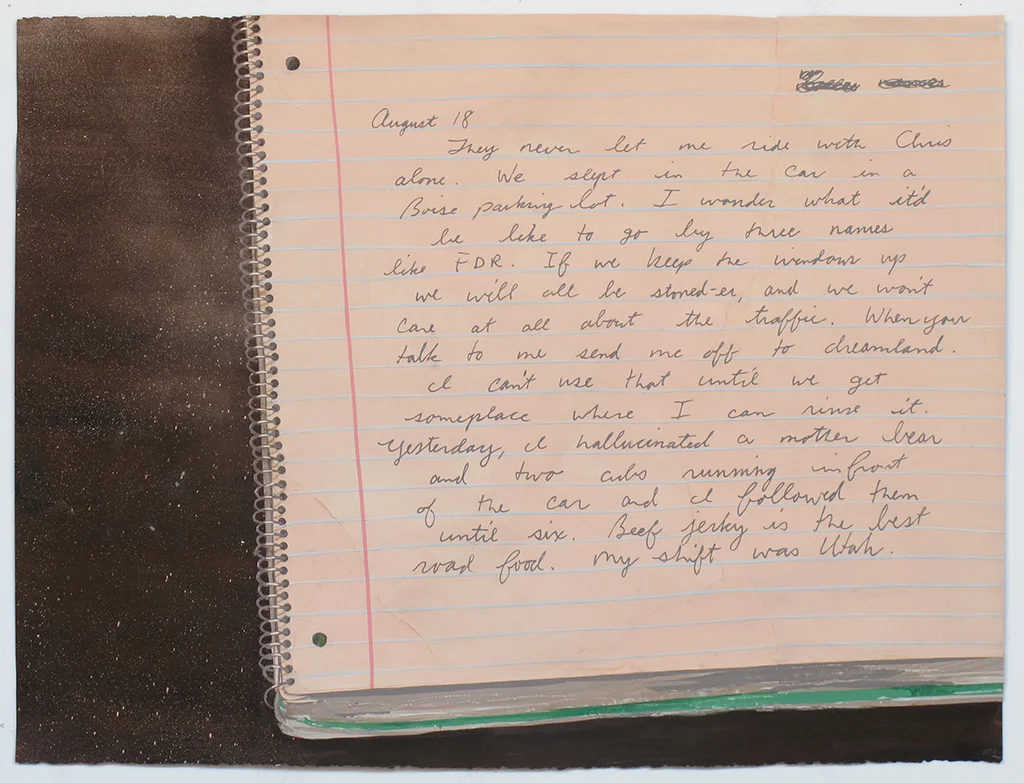 August 18
They never let me ride with Chris
alone. We slept in the car in a
Boise parking lot. I wonder what it'd
be like to go by three names
like FDR. If we keep the windows up
we will all be stoned-er, and we won't
care at all about the traffic. When your
talk to me send me off to dreamland.
I can't use that until we get
someplace where I can rinse it.
Yesterday, I hallucinated a mother bear
and two cubs running infront
of the car and I followed them
until six. Beef jerky is the best
road food. My shift was Utah.